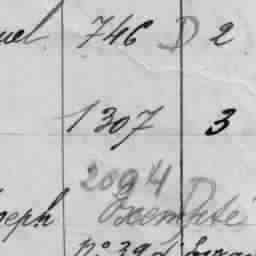 746 D 2
1307 3
2094
seph Exempté
n° 39